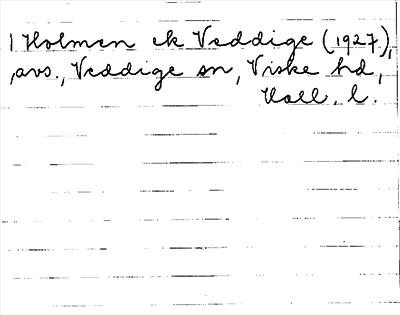 1 Holmen ek Veddige (1927),
avs., Veddige sn, Viske hd,
Hall. l.